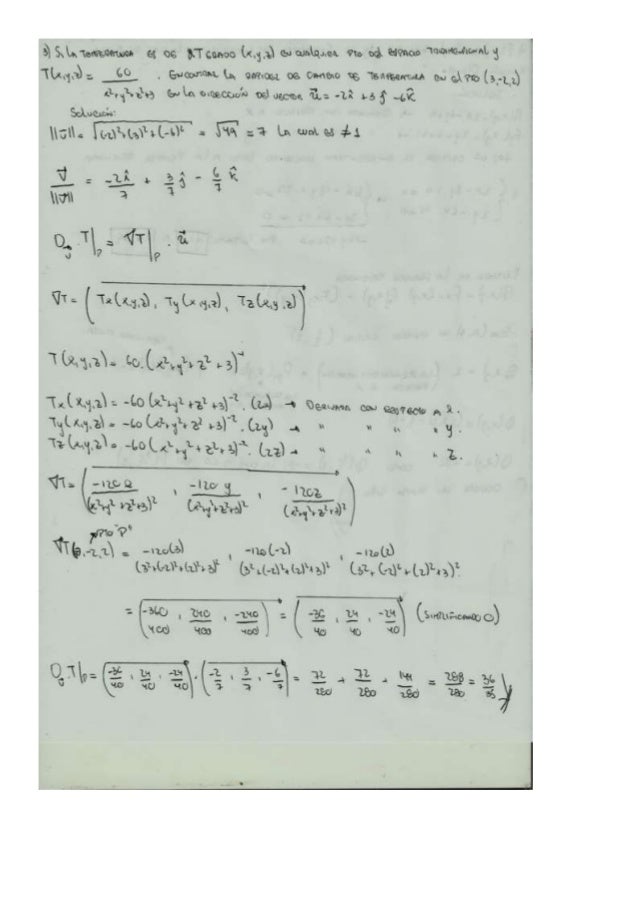 3) Si la TEMPERATURA ES DE T GRADO (x,y,z) EN CUALQUIER PTO DEL ESPACIO TRIDIMENSIONAL y
T(x,y,z) = 60 / x²+y²+z²+3 . ENCONTRAR LA RAPIDEZ DE CAMBIO DE TEMPERATURA EN el PTO (3,-2,2)
EN LA DIRECCIÓN DEL VECTOR ū = -2î + 3ĵ - 6k̂
Solución:
||v̄|| = √((-2)²+(3)²+(-6)²) = √49 = 7 LA CUAL ES ≠ 1
v̄ / ||v̄|| = -2î/7 + 3/7 ĵ - 6/7 k̂
Dv T|p = ∇T|p · ū
∇T = (Tx(x,y,z), Ty(x,y,z), Tz(x,y,z))
T(x,y,z) = 60.(x²+y²+z²+3)⁻¹
Tx(x,y,z) = -60(x²+y²+z²+3)⁻².(2x) → DERIVADA CON RESPECTO A x.
Ty(x,y,z) = -60(x²+y²+z²+3)⁻².(2y) → " " " " y.
Tz(x,y,z) = -60(x²+y²+z²+3)⁻².(2z) → " " " " z.
∇T = (-120x/(x²+y²+z²+3)², -120y/(x²+y²+z²+3)², -120z/(x²+y²+z²+3)²)
PTO "P"
∇T(3,-2,2) = -120(3)/(3²+(-2)²+(2)²+3)², -120(-2)/(3²+(-2)²+(2)²+3)², -120(2)/(3²+(-2)²+(2)²+3)²
= (-360/400, 240/400, -240/400) = (-36/40, 24/40, -24/40) (SIMPLIFICANDO)
Dv T|p = (-36/40, 24/40, -24/40)·(-2/7, 3/7, -6/7) = 72/280 + 72/280 + 144/280 = 288/280 = 36/35